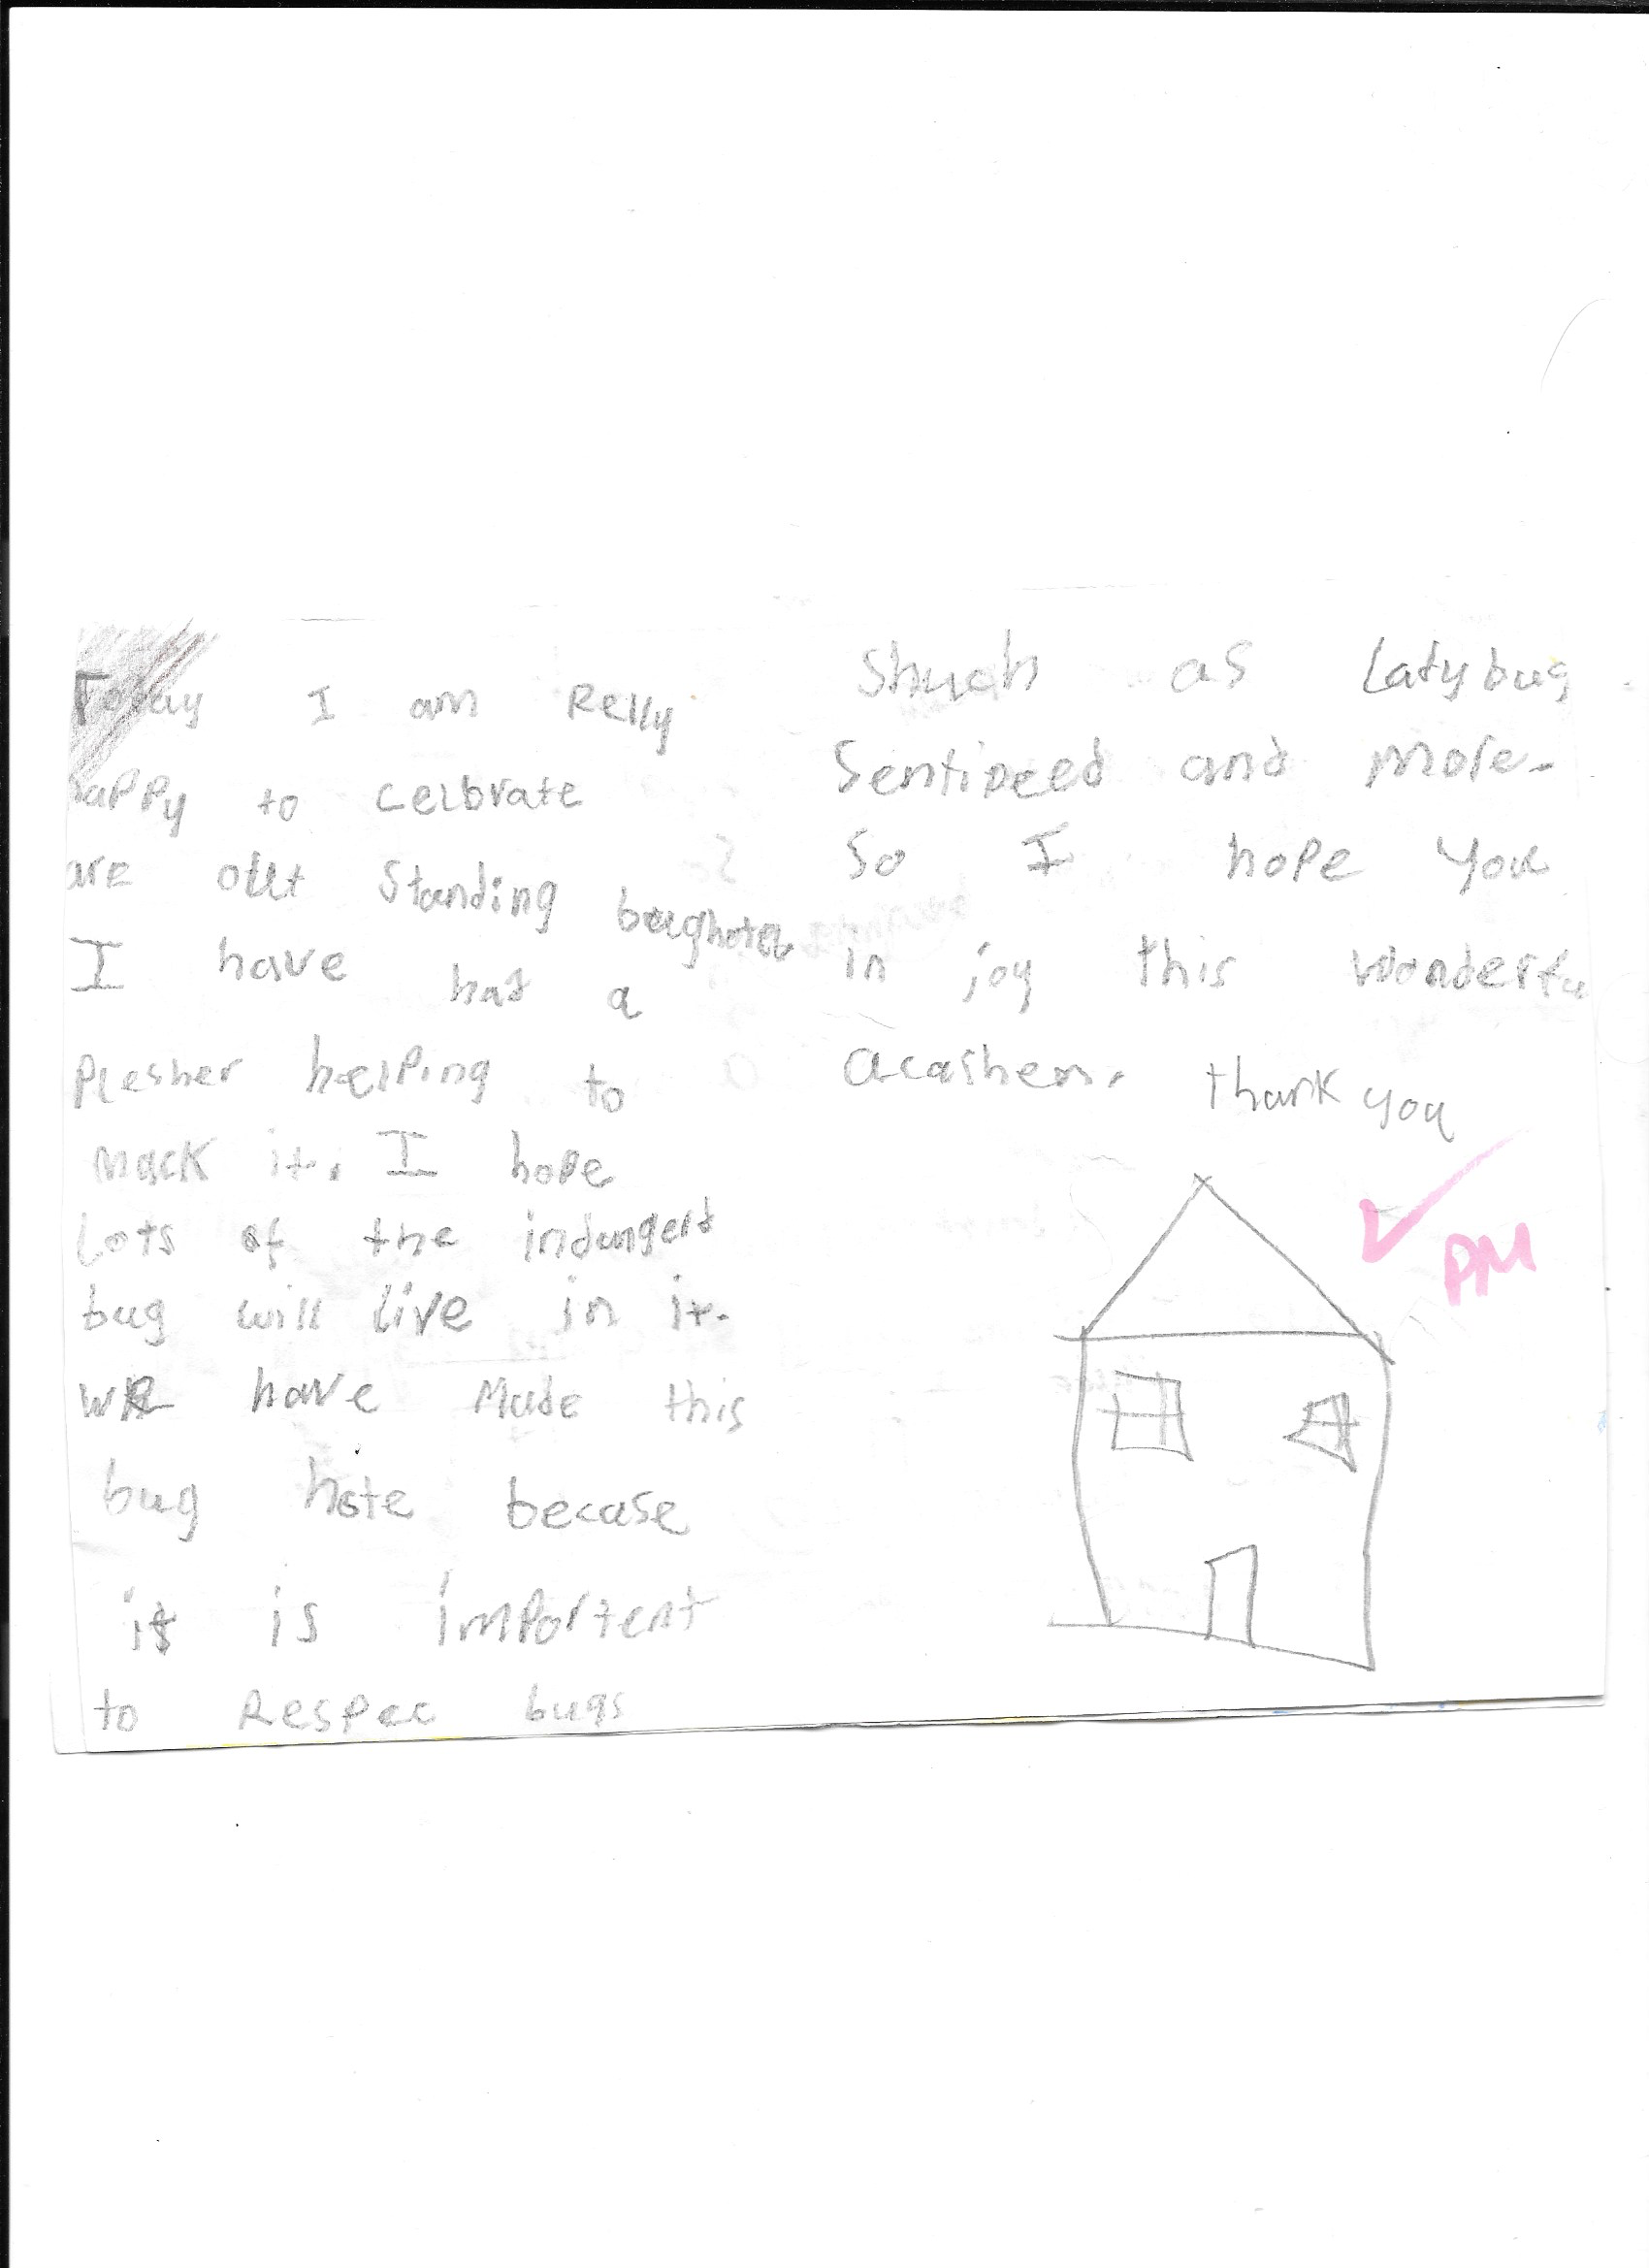 Today I am Relly
happy to celbrate
are out standing bughotel
I have had a
Plesher helping to
mack it. I hope
Lots of the indangerd
bug will live in it.
We have Made this
bug hote becase
it is importent
to Respec bugs
Shuch as Ladybug
Sentipeed and more.
So I hope you
in joy this wonderfu
acashen. thank you
PM